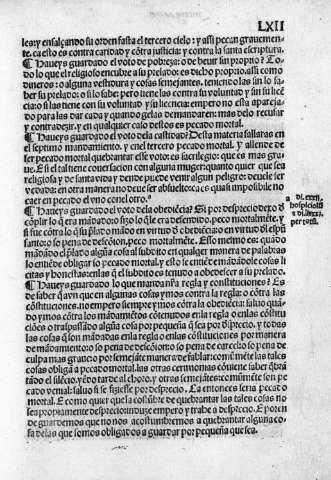 LXII
les: y ensalçando su orden fasta el tercero cielo: y assi pecan grauemen-
te. ca esto es contra caridad y cõtra justicia: y contra la santa escriptura.
¶ Haueys guardado el voto de pobreza: o de beuir sin proprio? To-
do lo que el religioso encubre a su prelado: es dicho proprio. assi como
dineros: o alguna vestidura y cosas semejantes. teniendo las sin lo sa-
ber su prelado: o si lo saber. pero si tiene las contra su voluntad y sin su licẽ-
cia: o si las tiene con su voluntad y su licencia: empero no esta apareja-
do para las dar cada y quando gelas demandaren: mas delo recusar
y contradezir. y en qualquier caso destos es pecado mortal.
¶ Haueys guardado el voto dela castidad? Desta materia fallaras en
el septimo mandamiento. y enel tercero pecado mortal. Y allende de
ser pecado mortal quebrantar esse voto: es sacrilegio: que es mas gra-
ue. E si el tal tiene conuersacion con alguna muger quanto quier que sea
religiosa y de santa vida y dende puede venir algun peligro: deuele ser
vedado: en otra manera no deue ser absuelto: ca es quasi impossible no
caer en pecado el vno con el otro.
¶ Haueys guardado el voto dela obediẽcia? Si por desprecio dexo d̃
cõplir lo q̃ era mãdado: o fizo lo q̃ era defendido. peco mortalmẽte. y
si fue cõtra lo q̃ su p̃lado mãdo en virtud d̃ obediẽcia: o en virtud d̃l espũ
santo: o so pena de descõion. peco mortalmẽte. Esso mesmo es: quãdo
mãdado el p̃lado algũa cosa al subdito en qualquier manera de palabras
lo entiẽde obligar so pecado mortal. y esto se entiẽde mãdãdole cosas li-
citas y honestas: en las q̃ el subdito es tenudo a obedescer a su prelado.
¶ Haueys guardado lo que manda vr̃a regla y constituciones? Es
de saber q̃ avn que en algunas cosas ymos contra la regla: o cõtra las
constituciones. no empero siempre ymos cõtra la obediẽcia: saluo quã-
do ymos cõtra los mãdamiẽtos cõtenudos en la regla o en las cõstitu-
ciões o traspassãdo algũa cosa por pequeña q̃ sea por d̃sprecio. y todas
las cosas que son mãdadas en la regla o en las cõstituciones por manera
de mãdamiento: o so pena de descõion o so pena de carcel o so pena de
culpa mas graue: o por semejãte manera de fablar: comũmẽte las tales
cosas obligã a pecado mortal. las otras cerimonias cõuiene saber q̃brã-
tãdo el silẽcio. yẽdo tarde al choro. y otras semejãtes: comũmẽte son pe-
cado venial: saluo si se fiziesse por desprecio. Ca entonces seria pecado
mortal. E como quier que la costũbre de quebrantar las tales cosas no
sea propiamente desprecio: induze empero y trahe a desprecio. E poren
de guardemos que no nos acostumbremos a quebrantar alguna co-
sa delas que somos obligados a guardar por pequeña que sea.